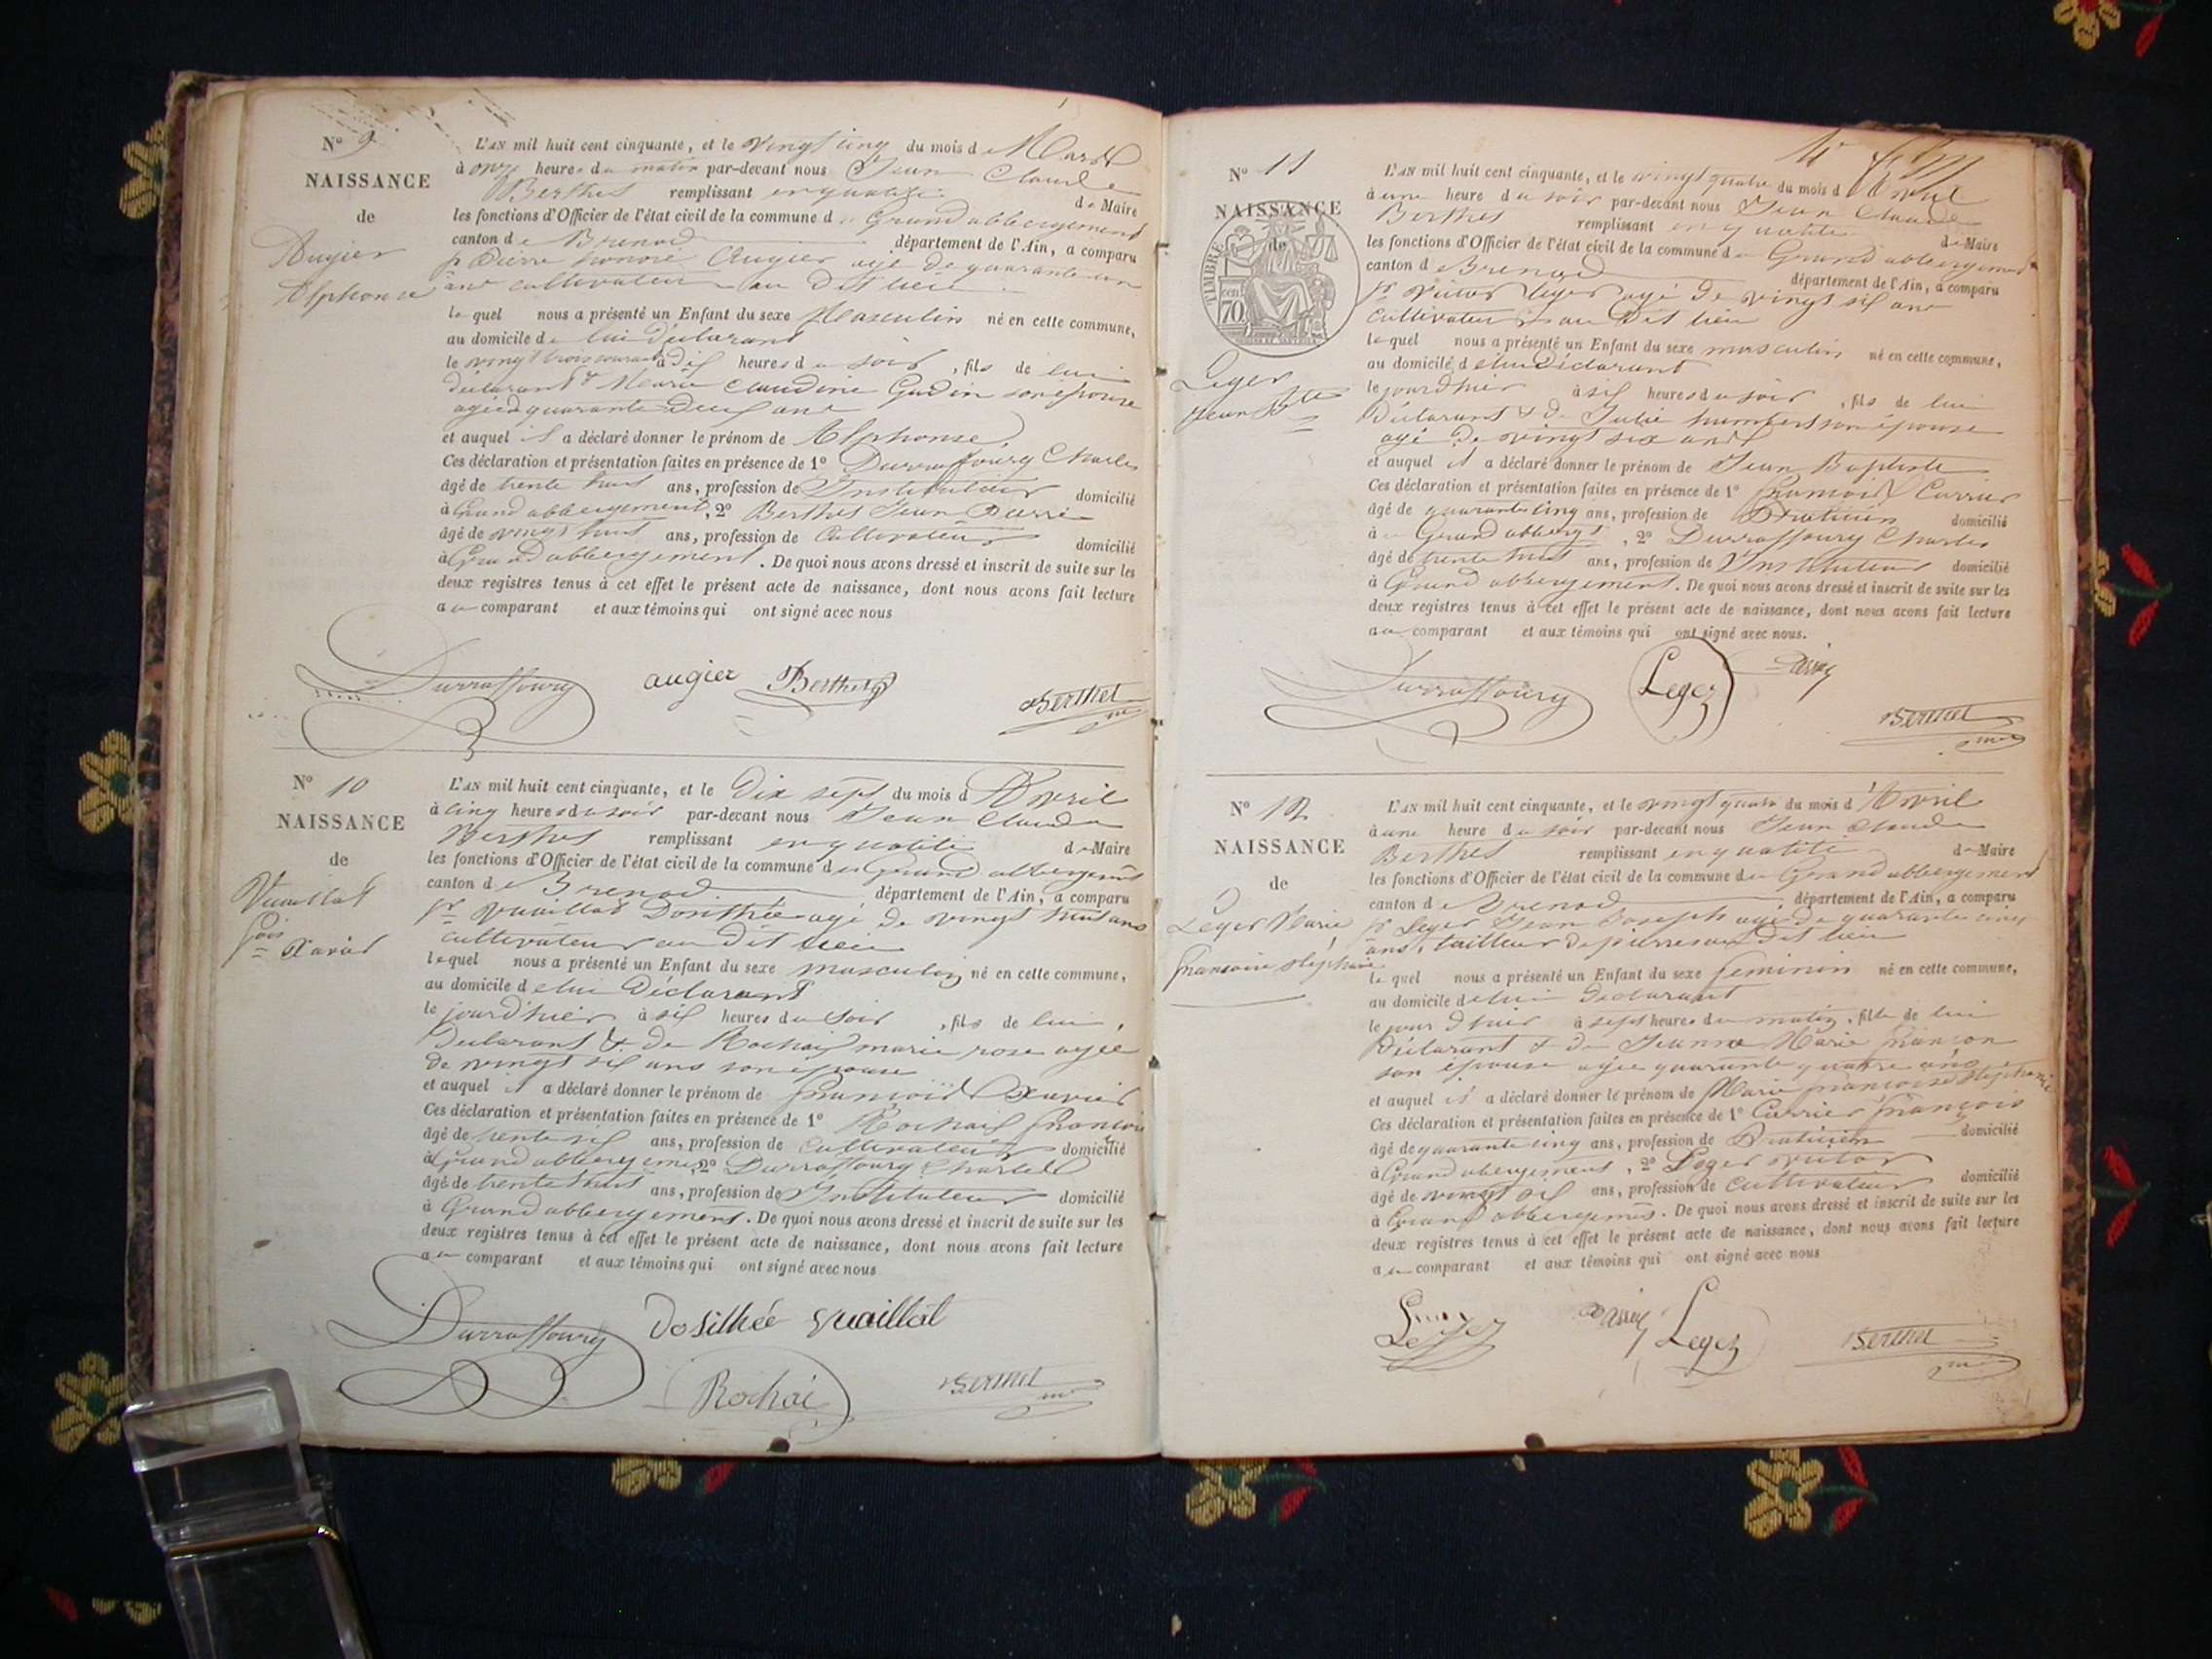 N° 9
NAISSANCE
de
Augier
Alphonse
L'AN mil huit cent cinquante, et le vingt cinq du mois de Mars
à onze heures du matin par-devant nous Jean Claude
Berthet remplissant en qualité de Maire
les fonctions d'Officier de l'état civil de la commune du Grand abbergement
canton de Brenod département de l'Ain, a comparu
pr Pierre honoré Augier agé de quarante un
ans cultivateur au dit lieu
lequel nous a présenté un Enfant du sexe Masculin né en cette commune,
au domicile de lui déclarant
le vingt trois courant à dix heures du soir, fils de lui
déclarant & Marie Claudine Gudin son épouse
agée d quarante deux ans
et auquel il a déclaré donner le prénom de Alphonse
Ces déclaration et présentation faites en présence de 1° Durraffourg Charles
âgé de trente huit ans, profession de Instituteur domicilié
à Grand abbergement, 2° Berthet Jean Pierre
âgé de vingt huit ans, profession de Cultivateur domicilié
à Grand abbergement. De quoi nous avons dressé et inscrit de suite sur les
deux registres tenus à cet effet le présent acte de naissance, dont nous avons fait lecture
au comparant et aux témoins qui ont signé avec nous
Durraffourg augier Berthet Berthet
N° 10
NAISSANCE
de
Vuaillat
fois
Xavier
L'AN mil huit cent cinquante, et le Dix sept du mois d Avril
à cinq heures du soir par-devant nous Jean Claude
Berthet remplissant en qualité de Maire
les fonctions d'Officier de l'état civil de la commune du Grand abbergemt
canton de Brenod département de l'Ain, a comparu
pr Vuaillat Dosithée agé de vingt huit ans
cultivateur au dit lieu
lequel nous a présenté un Enfant du sexe masculin né en cette commune,
au domicile de lui Déclarant
le jour d'hier à six heures du soir, fils de lui,
Déclarant & de Rochaix marie rose agée
de vingt six ans son épouse
et auquel il a déclaré donner le prénom de François Xavier
Ces déclaration et présentation faites en présence de 1° Rochaix François
âgé de trente six ans, profession de cultivateur domicilié
à Grand abbergement 2° Durraffourg Charles
âgé de trente huit ans, profession de Instituteur domicilié
à Grand abbergement. De quoi nous avons dressé et inscrit de suite sur les
deux registres tenus à cet effet le présent acte de naissance, dont nous avons fait lecture
au comparant et aux témoins qui ont signé avec nous
Durraffourg dosithée vuaillat
Rochai Berthet
N° 11
NAISSANCE
de
TIMBRE
70
Leger
Jean Bte
L'AN mil huit cent cinquante, et le vingt quatre du mois d Avril
à une heure du soir par-devant nous Jean Claude
Berthet remplissant en qualité de Maire
les fonctions d'Officier de l'état civil de la commune du Grand abbergement
canton de Brenod département de l'Ain, a comparu
pr Victor Léger agé de vingt six ans
cultivateur au dit lieu
lequel nous a présenté un Enfant du sexe masculin né en cette commune,
au domicile de lui Déclarant
le jour d'hier à six heures du soir, fils de lui
Déclarant & de Julie humbert son épouse
agé de vingt six ans
et auquel il a déclaré donner le prénom de Jean Baptiste
Ces déclaration et présentation faites en présence de 1° François Carrier
âgé de quarante cinq ans, profession de Praticien domicilié
à Grand abbergt, 2° Durraffourg Charles
âgé de trente huit ans, profession de Instituteur domicilié
à Grand abbergement. De quoi nous avons dressé et inscrit de suite sur les
deux registres tenus à cet effet le présent acte de naissance, dont nous avons fait lecture
au comparant et aux témoins qui ont signé avec nous.
Durraffourg Leger Berthet
N° 12
NAISSANCE
de
Leger Marie
françoise stéphanie
L'AN mil huit cent cinquante, et le vingt quatre du mois d'Avril
à une heure du soir par-devant nous Jean Claude
Berthet remplissant en qualité de Maire
les fonctions d'Officier de l'état civil de la commune du Grand abbergement
canton de Brenod département de l'Ain, a comparu
pr Leger Jean Joseph agé de quarante cinq
ans, tailleur de pierres au dit lieu
lequel nous a présenté un Enfant du sexe feminin né en cette commune,
au domicile de lui declarant
le jour d'hier à sept heures du matin, fille de lui
Déclarant & de Jeanne Marie françon
son épouse agée quarante quatre ans
et auquel il a déclaré donner le prénom de Marie françoise stéphanie
Ces déclaration et présentation faites en présence de 1° Carrier françois
âgé de quarante cinq ans, profession de Praticien domicilié
à Grand abergement, 2° Leger victor
âgé de vingt six ans, profession de cultivateur domicilié
à Grand abbergement. De quoi nous avons dressé et inscrit de suite sur les
deux registres tenus à cet effet le présent acte de naissance, dont nous avons fait lecture
au comparant et aux témoins qui ont signé avec nous
Leger Leger Berthet